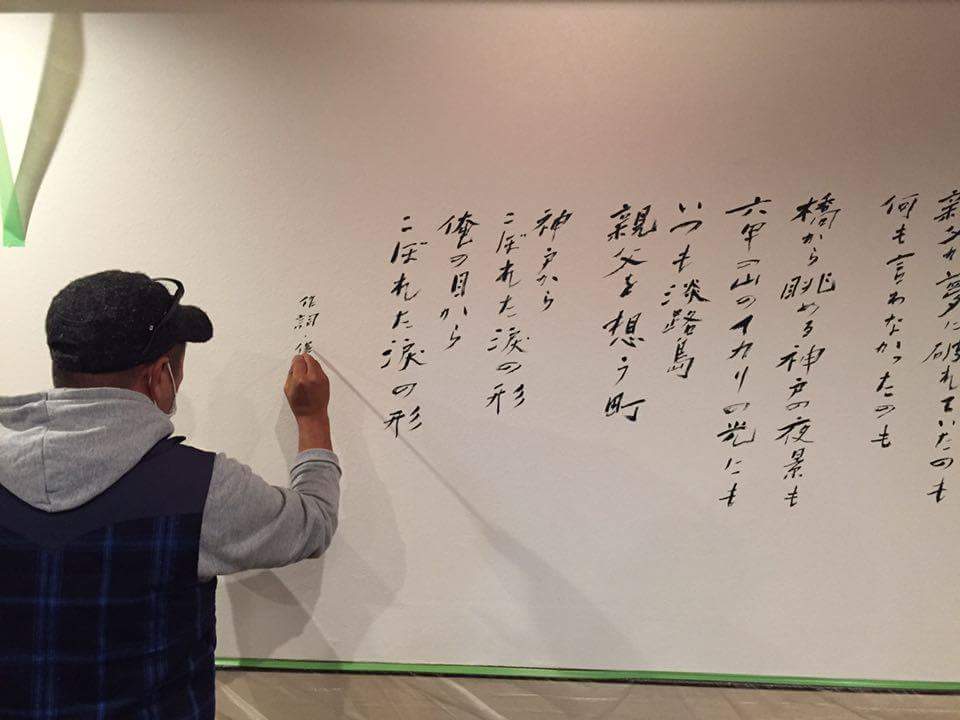 親父が夢に破れていたのも
何も言わなかったのも
橋から眺める神戸の夜景も
六甲の山のイカリの光にも
いつも淡路島
親父を想う町
神戸から
こぼれた涙の形
俺の目から
こぼれた涙の形
作詞・